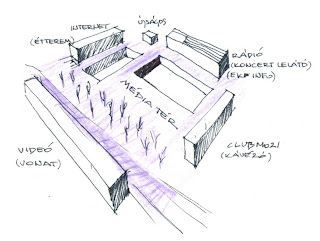 INTERNET
(ÉTTEREM)
ÚJSÁGOS
RÁDIÓ
(KONCERT LELÁTÓ)
(EKF INFO)
MÉDIA TÉR
VIDEÓ
(VONAT)
CLUBMOZI
(KÁVÉZÓ)